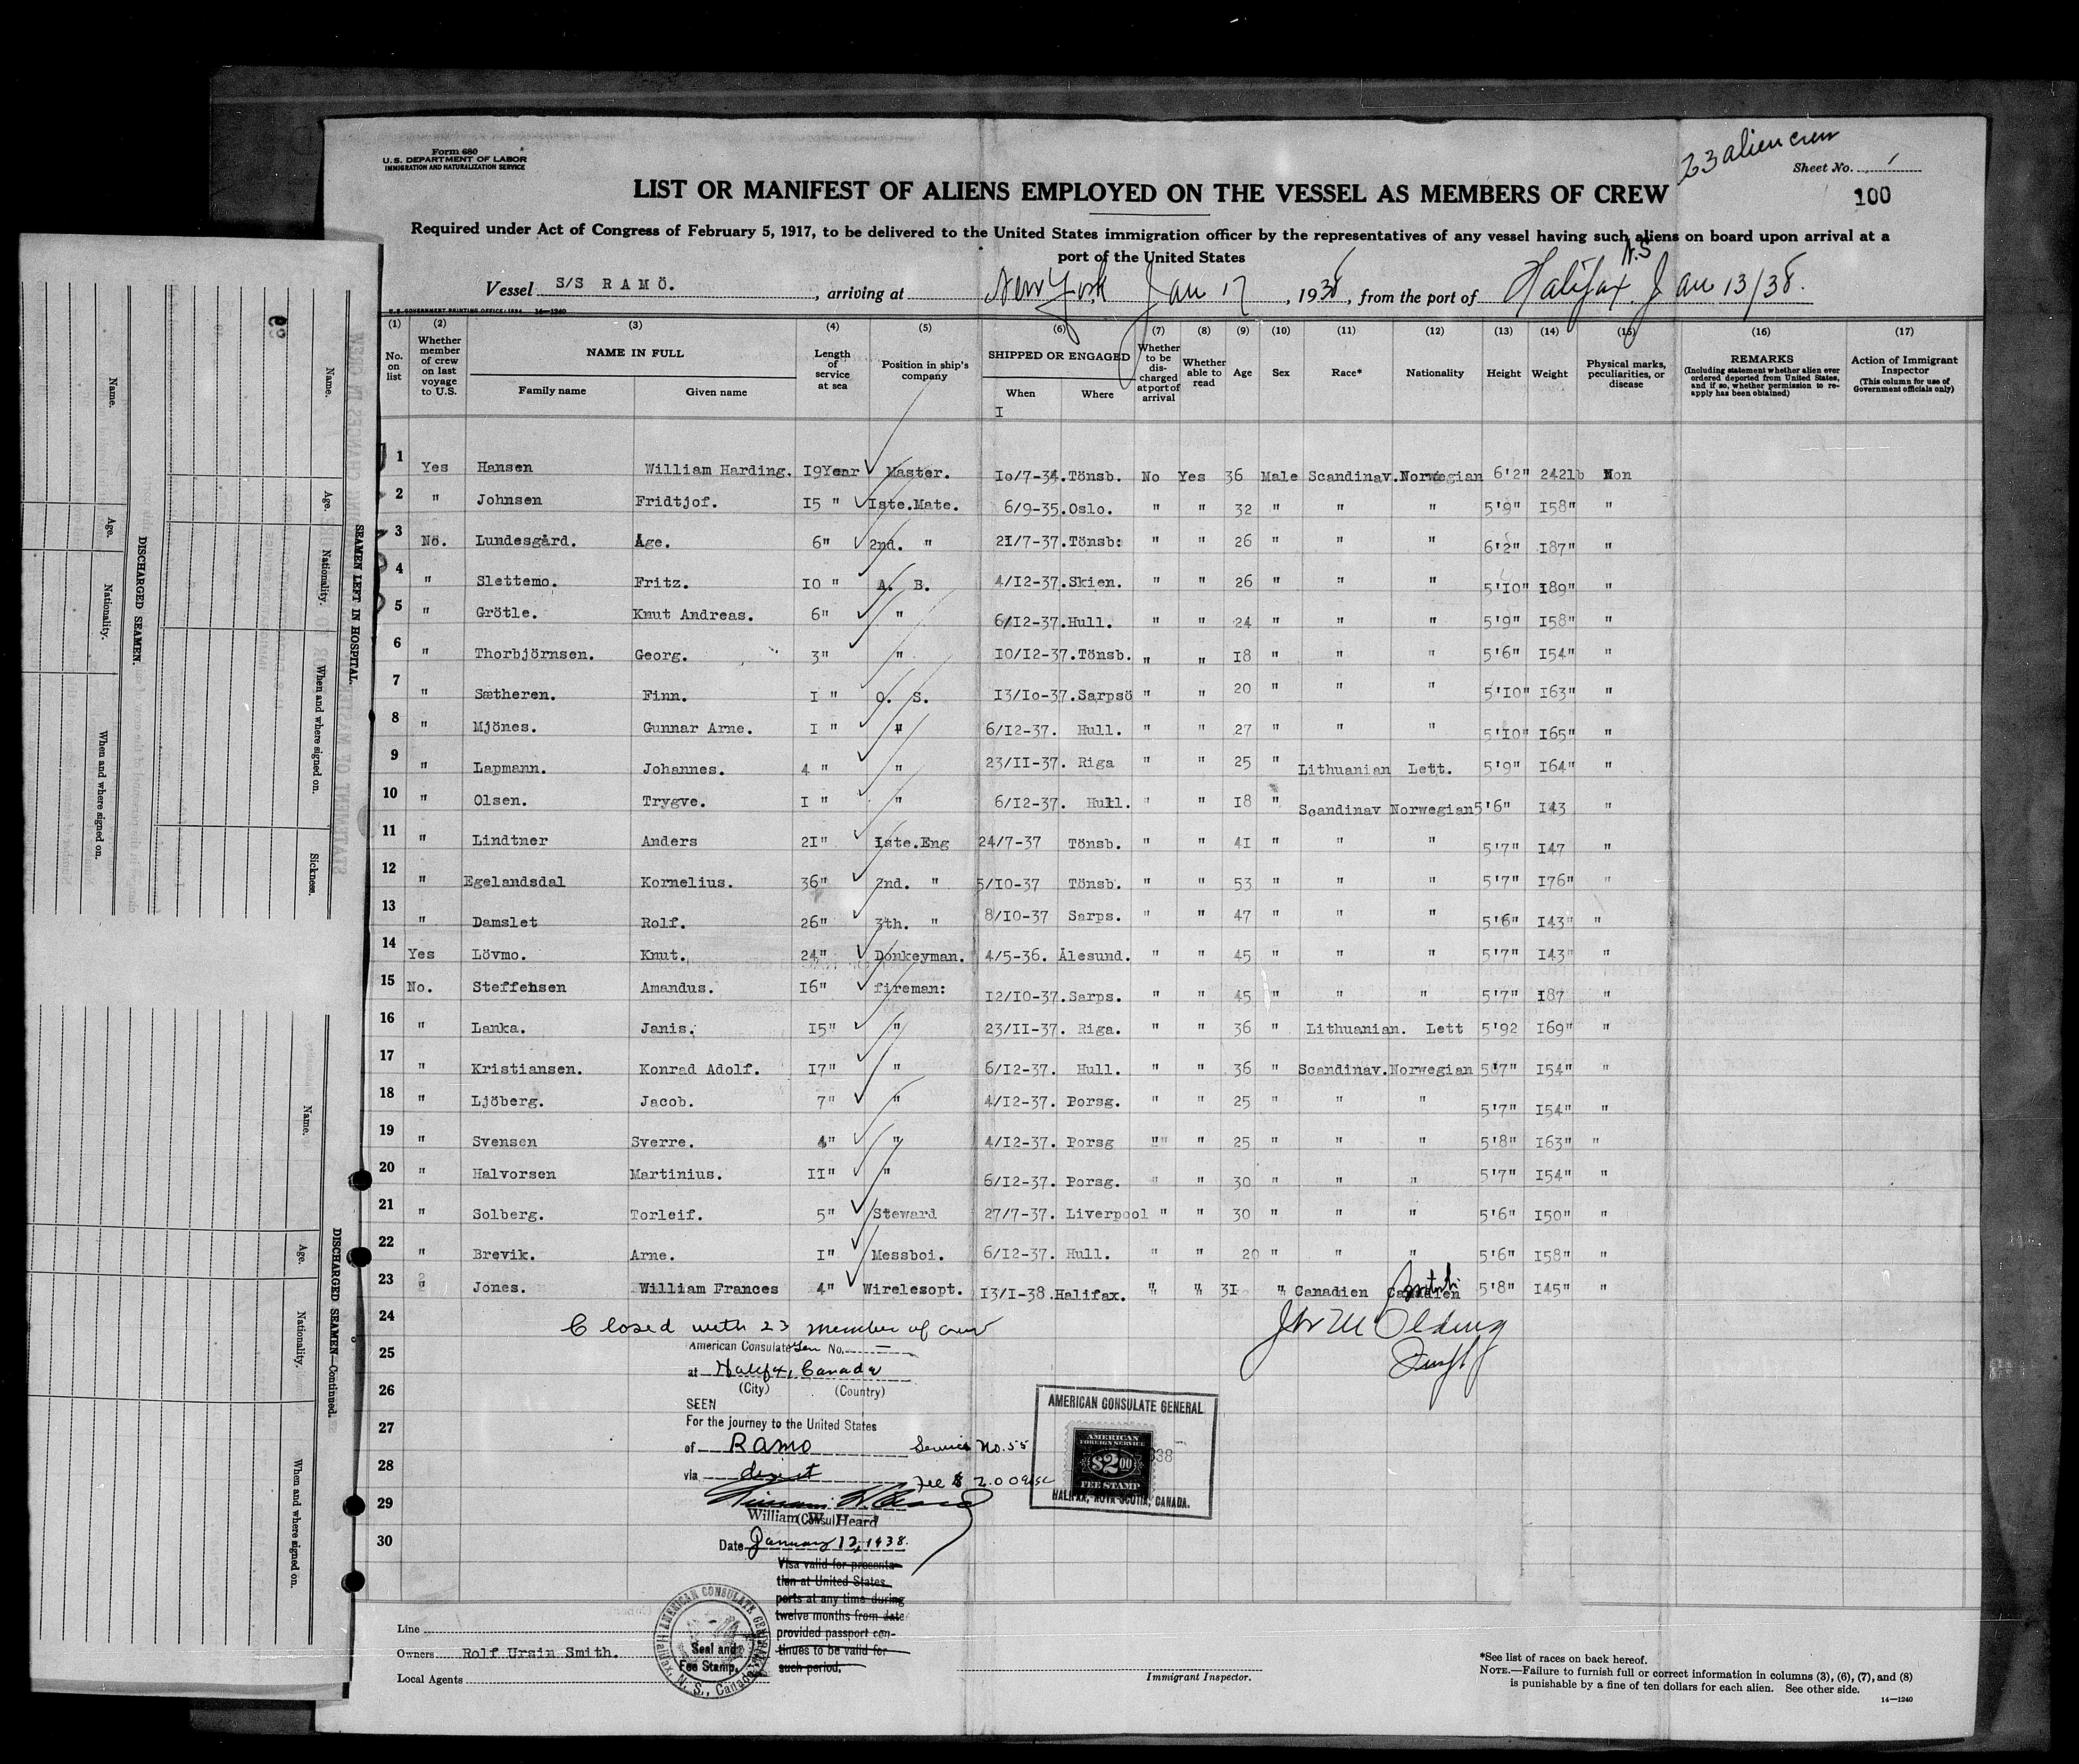 Form 680
U.S. DEPARTMENT OF LABOR
IMMIGRATION AND NATURALIZATION SERVICE
23 alien crew
Sheet No. 1
100
LIST OR MANIFEST OF ALIENS EMPLOYED ON THE VESSEL AS MEMBERS OF CREW
Required under Act of Congress of February 5, 1917, to be delivered to the United States immigration officer by the representatives of any vessel having such aliens on board upon arrival at a
port of the United States
Vessel S/S RAMÖ. , arriving at New York Jan 17 , 1938 , from the port of Halifax N.S Jan 13/38.
U.S. GOVERNMENT PRINTING OFFICE: 1934 14—1240
(1) (2) (3) (4) (5) (6) (7) (8) (9) (10) (11) (12) (13) (14) (15) (16) (17)
No. on list
Whether member of crew on last voyage to U.S.
NAME IN FULL
Family name
Given name
Length of service at sea
Position in ship's company
SHIPPED OR ENGAGED
When
Where
Whether to be discharged at port of arrival
Whether able to read
Age
Sex
Race*
Nationality
Height
Weight
Physical marks, peculiarities, or disease
REMARKS
(Including statement whether alien ever ordered deported from United States, and if so, whether permission to reapply has been obtained)
Action of Immigrant Inspector
(This column for use of Government officials only)
I
1 Yes Hansen William Harding. I9Year Master. Io/7-34. Tönsb. No Yes 36 Male Scandinav. Norwegian 6'2" 242lb Non
2 " Johnsen Fridtjof. I5 " Iste.Mate. 6/9-35. Oslo. " " 32 " " " 5'9" I58" "
3 No. Lundesgård. Åge. 6" 2nd. " 2I/7-37. Tönsb: " " 26 " " " 6'2" I87" "
4 " Slettemo. Fritz. IO " A. B. 4/I2-37. Skien. " " 26 " " " 5'IO" I89" "
5 " Grötle. Knut Andreas. 6" " 6/I2-37. Hull. " " 24 " " " 5'9" I58" "
6 " Thorbjörnsen. Georg. 3" " IO/I2-37. Tönsb. " " I8 " " " 5'6" I54" "
7 " Sætheren. Finn. I " O. S. I3/Io-37. Sarpsö " " 20 " " " 5'IO" I63" "
8 " Mjönes. Gunnar Arne. I " " 6/I2-37. Hull. " " 27 " " " 5'IO" I65" "
9 " Lapmann. Johannes. 4 " " 23/II-37. Riga " " 25 " Lithuanian Lett. 5'9" I64" "
10 " Olsen. Trygve. I " " 6/I2-37. Hull. " " I8 " Scandinav Norwegian 5'6" I43 "
11 " Lindtner Anders 2I" Iste.Eng 24/7-37 Tönsb. " " 4I " " " 5'7" I47 "
12 " Egelandsdal Kornelius. 36" 2nd. " 5/IO-37 Tönsb. " " 53 " " " 5'7" I76" "
13 " Damslet Rolf. 26" 3th. " 8/IO-37 Sarps. " " 47 " " " 5'6" I43" "
14 Yes Lövmo. Knut. 24" Donkeyman. 4/5-36. Ålesund. " " 45 " " " 5'7" I43" "
15 No. Steffensen Amandus. I6" fireman: I2/IO-37. Sarps. " " 45 " " " 5'7" I87 "
16 " Lanka. Janis. I5" " 23/II-37. Riga. " " 36 " Lithuanian. Lett 5'92 I69" "
17 " Kristiansen. Konrad Adolf. I7" " 6/I2-37. Hull. " " 36 " Scandinav. Norwegian 5'7" I54" "
18 " Ljöberg. Jacob. 7" " 4/I2-37. Porsg. " " 25 " " " 5'7" I54" "
19 " Svensen Sverre. 4" " 4/I2-37. Porsg "" " 25 " " " 5'8" I63" "
20 " Halvorsen Martinius. II" " 6/I2-37. Porsg. " " 30 " " " 5'7" I54" "
21 " Solberg. Torleif. 5" Steward 27/7-37. Liverpool " " 30 " " " 5'6" I50" "
22 " Brevik. Arne. I" Messboi. 6/I2-37. Hull. " " 20 " " " 5'6" I58" "
23 " Jones. William Frances 4" Wirelesopt. I3/I-38. Halifax. " " 3I " Canadien Canadien 5'8" I45" "
24 Closed with 23 member of crew
25 American Consulate Gen No. —
at Halifax, Canada
26 (City) (Country)
SEEN
27 For the journey to the United States
of Ramo Service No. 55
28 via direct Fee $ 2.00
29 William W. Heard
(Consul)
30 Date January 12, 1938.
Visa valid for presenta-
tion at United States
ports at any time during
twelve months from date
provided passport con-
tinues to be valid for
such period.
AMERICAN CONSULATE GENERAL
AMERICAN
FOREIGN SERVICE
$2.00
FEE STAMP
HALIFAX, NOVA SCOTIA, CANADA.
AMERICAN CONSULATE GENERAL
Halifax, N. S., Canada
Seal and
Fee Stamp.
Line
Owners Rolf Ursin Smith.
Local Agents
Immigrant Inspector.
*See list of races on back hereof.
NOTE.—Failure to furnish full or correct information in columns (3), (6), (7), and (8)
is punishable by a fine of ten dollars for each alien. See other side.
14—1240
SEAMEN LEFT IN HOSPITAL.
Name. Age. Nationality. When and where signed on. Sickness.
DISCHARGED SEAMEN.
Name. Age. Nationality. When and where signed on.
DISCHARGED SEAMEN—Continued.
Name. Age. Nationality. When and where signed on.